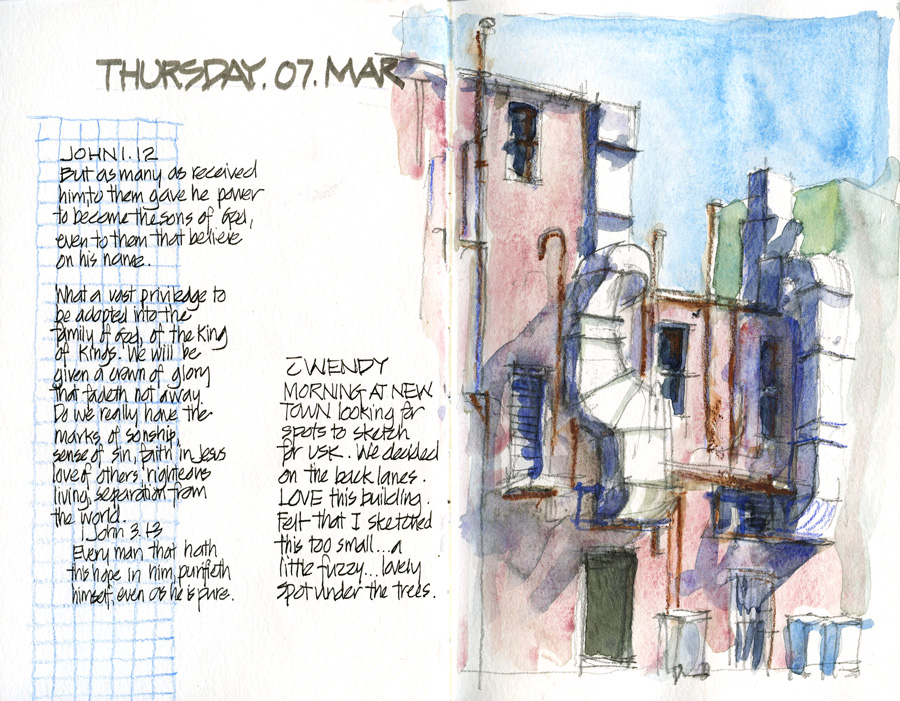 THURSDAY. 07. MAR
JOHN 1. 12
But as many as received
him, to them gave he power
to become the sons of God,
even to them that believe
on his name.
What a vast priviledge to
be adopted into the
family of God, of the King
of Kings. We will be
given a crown of glory
that fadeth not away.
Do we really have the
marks of sonship,
sense of sin, faith in Jesus
love of others, righteous
living, separation from
the world.
1 John 3.13
Every man that hath
this hope in him, purifieth
himself, even as he is pure.
c̄ WENDY
MORNING AT NEW
TOWN looking for
spots to sketch
for USK. We decided
on the back lanes.
LOVE this building.
Felt that I sketched
this too small...a
little fuzzy...lovely
spot under the trees.